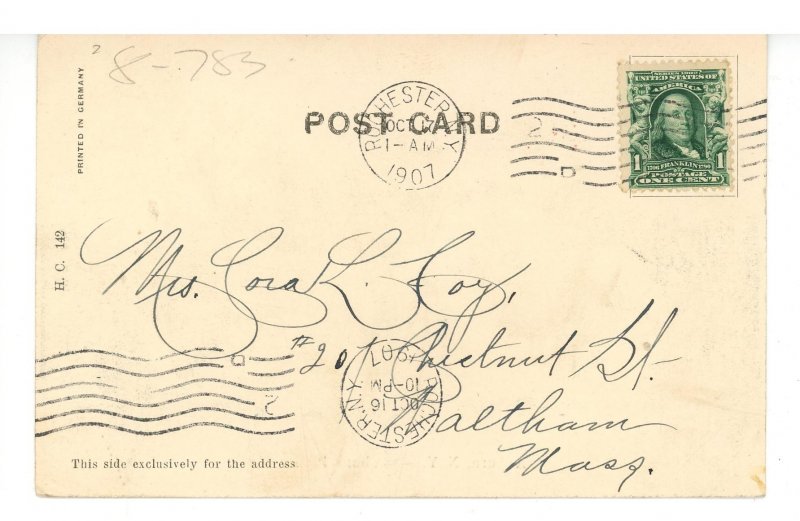 8-783
PRINTED IN GERMANY
POST CARD
ROCHESTER, N.Y.
OCT 17
1-AM
1907
SERIES 1902
UNITED STATES OF
AMERICA
1 1706 FRANKLIN 1790 1
POSTAGE
ONE CENT
2
D
H. C. 142
Mrs. Cora L. Foy,
#201 Chestnut St.
Waltham
Mass.
ROCHESTER, N.Y.
OCT 16
10-PM
1907
D
2
This side exclusively for the address.